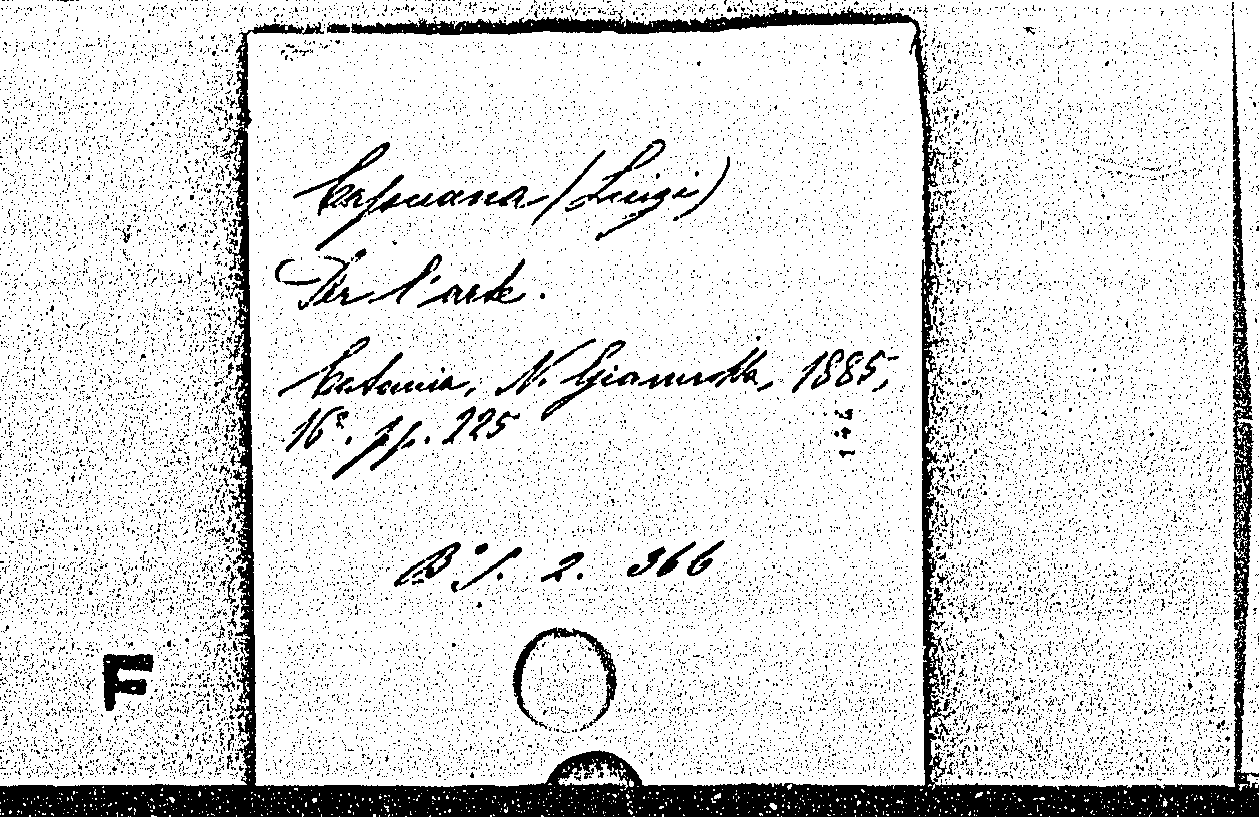 Capuana (Luigi)
Per l'arte.
Catania, N. Giannotta, 1885,
16°. pp. 225
2. 366
F